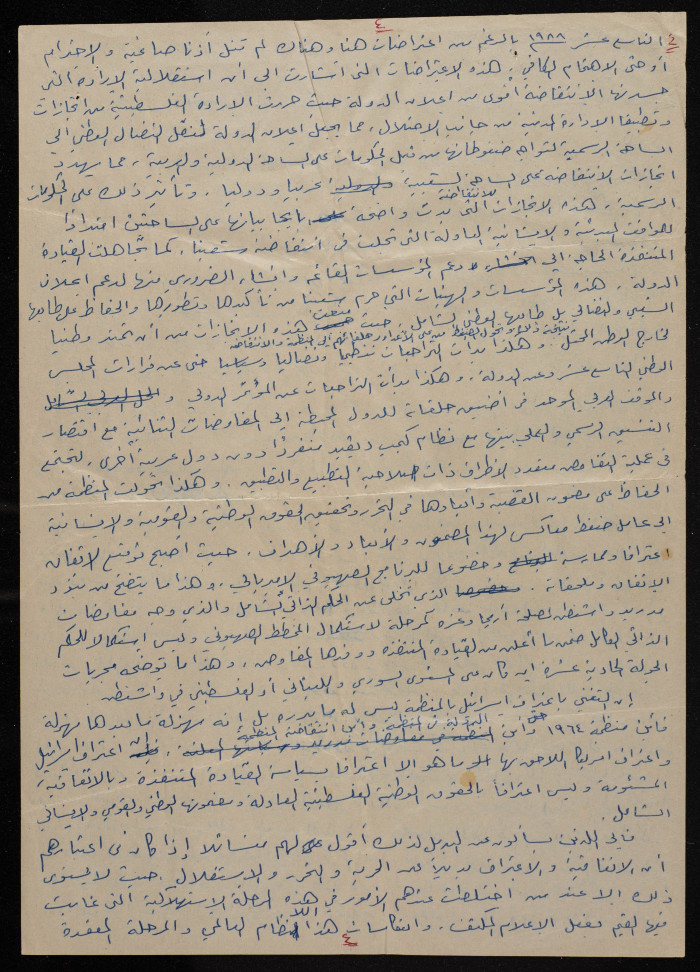 ٤
٤ التاسع عشر ١٩٨٨ بالرغم من اعتراضات هنا وهناك لم تنل أذناً صاغية والاحترام
أو حتى الاهتمام الكافي. هذه الاعتراضات التي أشارت الى أن استقلالية الارادة التي
جسدتها الانتفاضة أقوى من اعلان الدولة حيث حررت الارادة الفلسطينية من انجازات
وتطبيقا الادارة المدنية من جانب الاحتلال، مما يجعل اعلان الدولة لنقل النضال الوطني الى
الساحة الرسمية لتواجه ضغوطاتها من قبل الحكومات على الساحة الدولية والعربية، مما يهدد
انجازات الانتفاضة على الساحة الشعبية عربيا ودوليا، وتأثير ذلك على الحكومات
الرسمية، هذه الانجازات التي للانتفاضة بدت واضحة بايجابياتها على الساحتين امتدادا
للمواقف المبدئية والانسانية العادلة التي تجلت في انتفاضة شعبنا، كما تجاهلت القيادة
المتنفذة الحاجة الى دعم المؤسسات القائمة وانشاء الضروري منها لدعم اعلان
الدولة، هذه المؤسسات والهيئات التي حرم شعبنا من تأكيدها وتطويرها والحفاظ على طابعها
الشعبي والنضالي بل طابعها الوطني الشامل، حيث منعت هذه الانجازات من أن تمتد وطنيا
لخارج الوطن المحتل. وهكذا بدأت التراجعات تنظيميا ونضاليا وسياسيا حتى عن قرارات المجلس
الوطني التاسع عشر وعن الدولة، وهكذا بدأت التراجعات عن المؤتمر الدولي و
والموقف العربي الموحد في أضيق حلقاته للدول المحيطة الى المفاوضات الثنائية مع اقتصار
التنسيق الرسمي والعلني بينها مع نظام كمب ديفيد منفردا دون دول عربية أخرى، لتجتمع
في عملية التفاوض متعدد الأطراف ذات صلاحية التطبيع والتطبيق. وهكذا تحولت المنظمة من
الحفاظ على مضمون القضية وأبعادها في التحرر وتحقيق الحقوق الوطنية والقومية والانسانية
الى عامل ضغط معاكس لهذا المضمون والأبعاد والأهداف، حيث أصبح توقيع الاتفاق
اعترافا وممارسة وخضوعا للبرنامج الصهيوني الامبريالي، وهذا ما يتضح من بنود
الاتفاق وملحقاته. الذي تخلى عن الحكم الذاتي الشامل والذي وجه مفاوضات
مدريد واشنطن لصالح أريحا وغزة كمرحلة لاستكمال المخطط الصهيوني وليس استكمالا للحكم
الذاتي الكامل ضمن ما أعلن من القيادة المتنفذة ووفدها المفاوض، وهذا ما توضحه مجريات
الجولة الحادية عشرة ان كان على المستوى السوري واللبناني أو الفلسطيني في واشنطن.
إن التغني باعتراف اسرائيل بالمنظمة ليس له ما يبرره بل إنه مهزلة ما بعدها مهزلة
فأين منظمة ١٩٦٤ وأين حتى وأين انتفاضة المنظمة، اعتراف اسرائيل
واعتراف امريكا اللاحق بها ما هو الا اعترافا بسياسة القيادة المتنفذة وبالاتفاقية
المشئومة وليس اعترافا بالحقوق الوطنية الفلسطينية العادلة ومضمونها الوطني والقومي والانساني
الشامل.
فالى الذين يسألون عن البديل لذلك أقول لهم متسائلا إذا كان في اعتبارهم
أن الاتفاقية والاعتراف بديلا عن الحرية والتحرر والاستقلال. حيث لا يستوي
ذلك الا عند من اختلطت عندهم الأمور في هذه المرحلة الاستهلاكية التي غابت
فيها القيم بفعل الاعلام المكثف، وانعكاسات هذا النظام العالمي والمرحلة المعقدة
٤